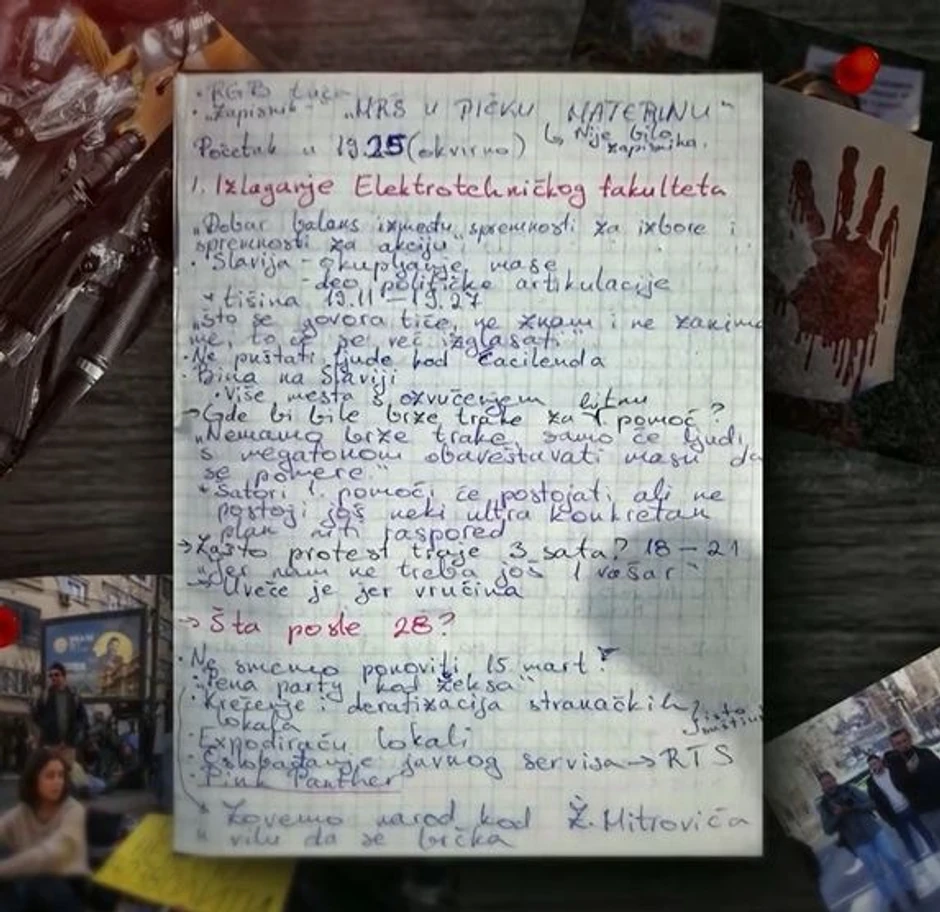 • RGB
• „Zapisnik" „MRŠ U PIČKU MATERINU"
Početak u 19.25 (okvirno) ↳ Nije bilo
zapisnika.
1. Izlaganje Elektrotehničkog fakulteta
„Dobar balans između spremnosti za izbore i
spremnosti za akciju"
• Slavija - okupljanje mase
- deo političke artikulacije
tišina 19.11 - 19.27
„Što se govora tiče, ne znam i ne zanima
me, to će se već izglasati"
• Ne puštati ljude kod Ćacilenda
• Bina na Slaviji
• Više mesta s ozvučenjem bitnu
→ Gde bi bile brze trake za 1. pomoć?
„Nemamo brze trake, samo će ljudi
s megafonom obaveštavati masu da
se pomere."
• Šatori 1. pomoći će postojati ali ne
postoji još neki ultra konkretan
plan niti raspored
→ Zašto protest traje 3 sata? 18 - 21
„Jer nam ne treba još 1 vašar"
→ Uveče je jer vrućina
→ Šta posle 28?
• Ne smemo ponoviti 15 mart!
• „Pena party kod Žeksa"
• Krečenje i deratizacija stranačkih
lokala
isto
• lokali
• javnog servisa → RTS
• Pink Panther
Zovemo narod kod Ž. Mitrovića
u vilu da se brčka